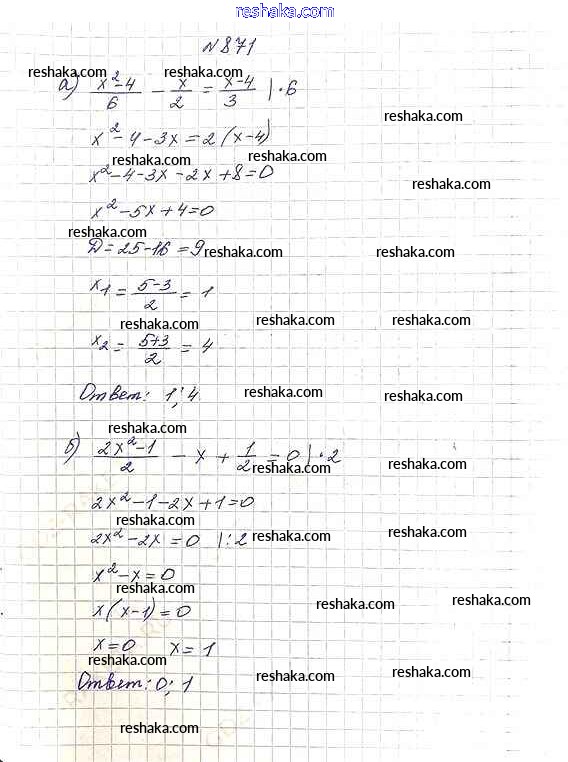 reshaka.com
N 871
reshaka.com reshaka.com
а) (x²-4)/6 - x/2 = (x-4)/3 |·6
reshaka.com
x²-4-3x=2(x-4)
reshaka.com reshaka.com
x²-4-3x-2x+8=0
reshaka.com
x²-5x+4=0
reshaka.com
D=25-16=9
reshaka.com reshaka.com
x₁=(5-3)/2=1
reshaka.com reshaka.com reshaka.com
x₂=(5+3)/2=4
Ответ: 1; 4
reshaka.com reshaka.com
reshaka.com
б) (2x²-1)/2 - x + 1/2 = 0 |·2
reshaka.com reshaka.com
2x²-1-2x+1=0
reshaka.com
2x²-2x=0 |:2
reshaka.com reshaka.com
x²-x=0
reshaka.com
x(x-1)=0
reshaka.com reshaka.com
x=0 x=1
reshaka.com
Ответ: 0; 1
reshaka.com reshaka.com
reshaka.com